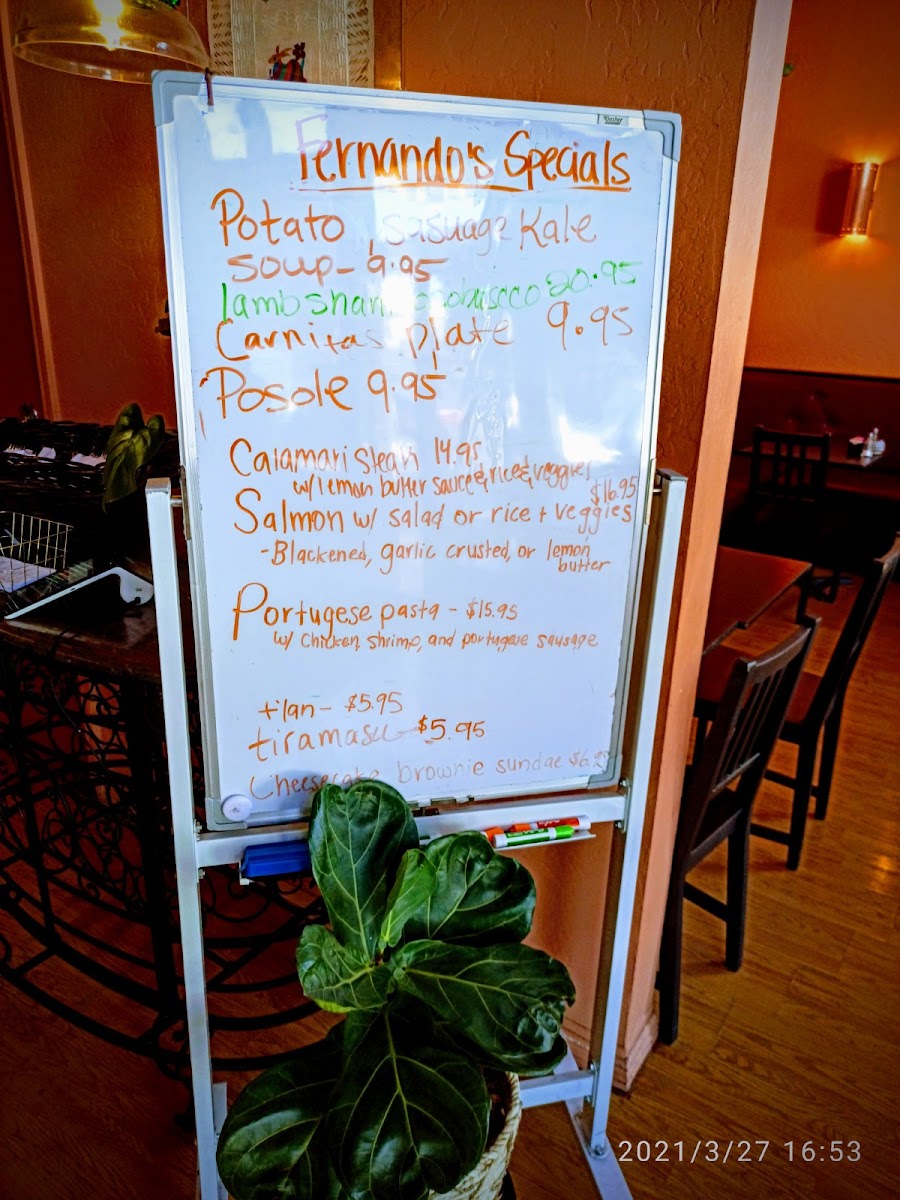 Fernando's Specials
Potato, sasuage Kale
soup- 9.95
lambshan 20.95
Carnitas plate 9.95
Posole 9.95
Calamari Steak 14.95
w/ lemon butter sauce & rice & veggies
$16.95
Salmon w/ salad or rice + veggies
-Blackened, garlic crusted, or lemon
butter
Portugese pasta - $15.95
w/ chicken, shrimp, and portugese sausage
flan- $5.95
tiramasu- $5.95
Cheesecake brownie sundae $6.95
2021/3/27 16:53